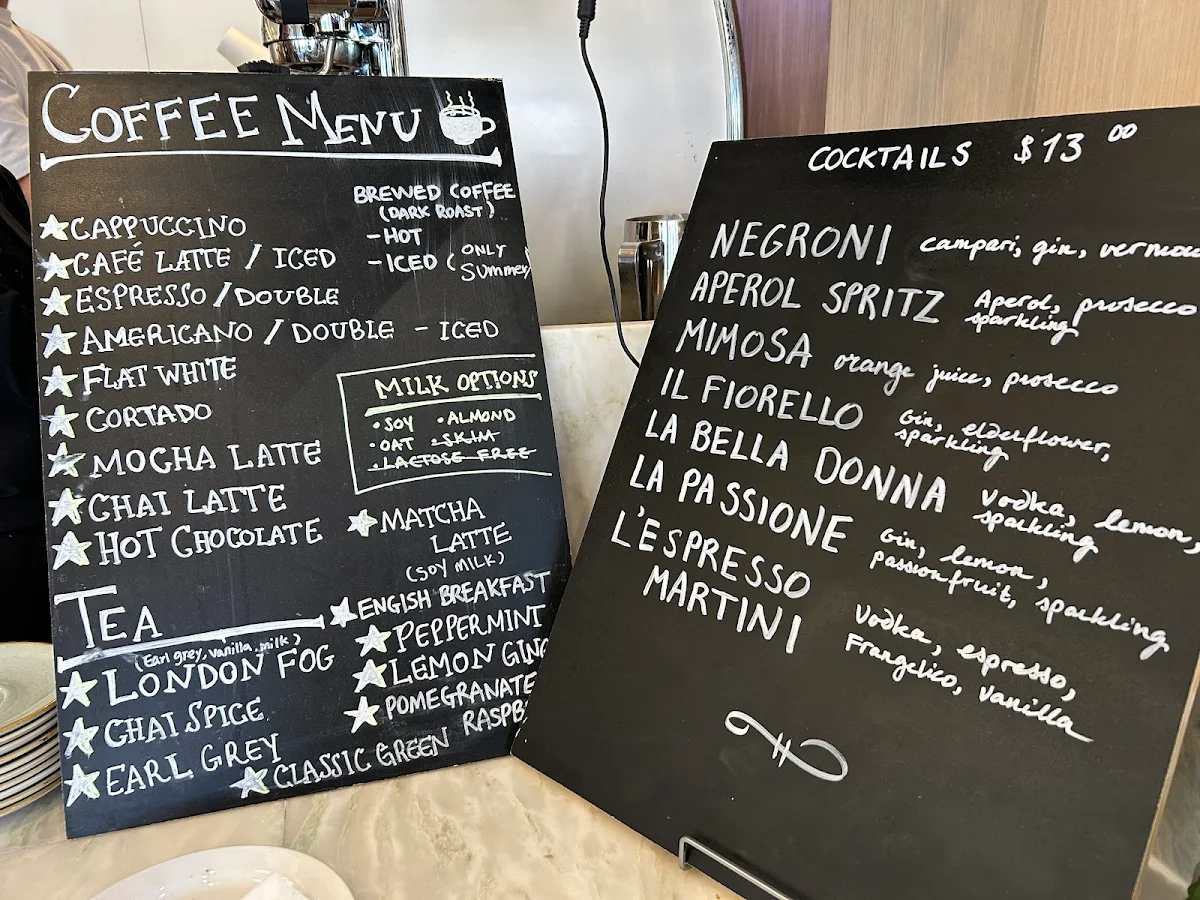 COFFEE MENU
BREWED COFFEE
(DARK ROAST)
-HOT
-ICED (ONLY SUMMER)
CAPPUCCINO
CAFÉ LATTE / ICED
ESPRESSO / DOUBLE
AMERICANO / DOUBLE - ICED
FLAT WHITE
CORTADO
MOCHA LATTE
CHAI LATTE
HOT CHOCOLATE
MILK OPTIONS
• SOY • ALMOND
• OAT • SKIM
• LACTOSE FREE
MATCHA
LATTE
(SOY MILK)
TEA
(Earl grey, vanilla, milk)
LONDON FOG
CHAI SPICE
EARL GREY
ENGISH BREAKFAST
PEPPERMINT
LEMON
POMEGRANATE
CLASSIC GREEN
COCKTAILS $13 00
NEGRONI campari, gin,
APEROL SPRITZ Aperol, prosecco
sparkling
MIMOSA orange juice, prosecco
IL FIORELLO Gin, elderflower,
sparkling
LA BELLA DONNA Vodka, lemon,
sparkling
LA PASSIONE Gin, lemon,
passionfruit, sparkling
L'ESPRESSO
MARTINI
Vodka, espresso,
Frangelico, vanilla